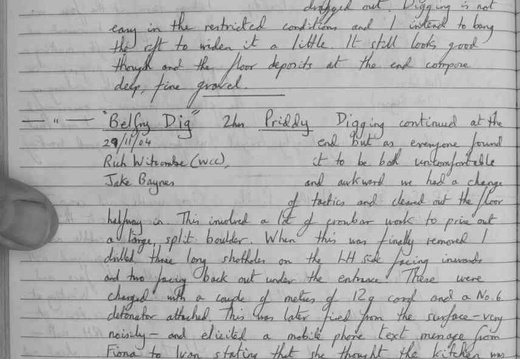 dragged out. Digging is not
easy in the restricted conditions and I intend to bang
the rift to widen it a little. It still looks good
though and the floor deposits at the end compose
deep, fine gravel.
— " — "Belfry Dig" 2hrs Priddy Digging continued at the
29/11/04 end but as everyone found
Rich Witcombe (WCC), it to be both uncomfortable
Jake Baynes and awkward we had a change
of tactics and cleared out the floor
halfway in. This involved a lot of crowbar work to prise out
a large, split boulder. When this was finally removed I
drilled three long shotholes on the LH side facing inwards
and two facing back out under the entrance. These were
charged with a couple of metres of 12g cord and a No. 6
detonator attached. This was later fired from the surface – very
noisily – and elicited a mobile phone text message from
Fiona to Ivan stating that she thought the kitchen was